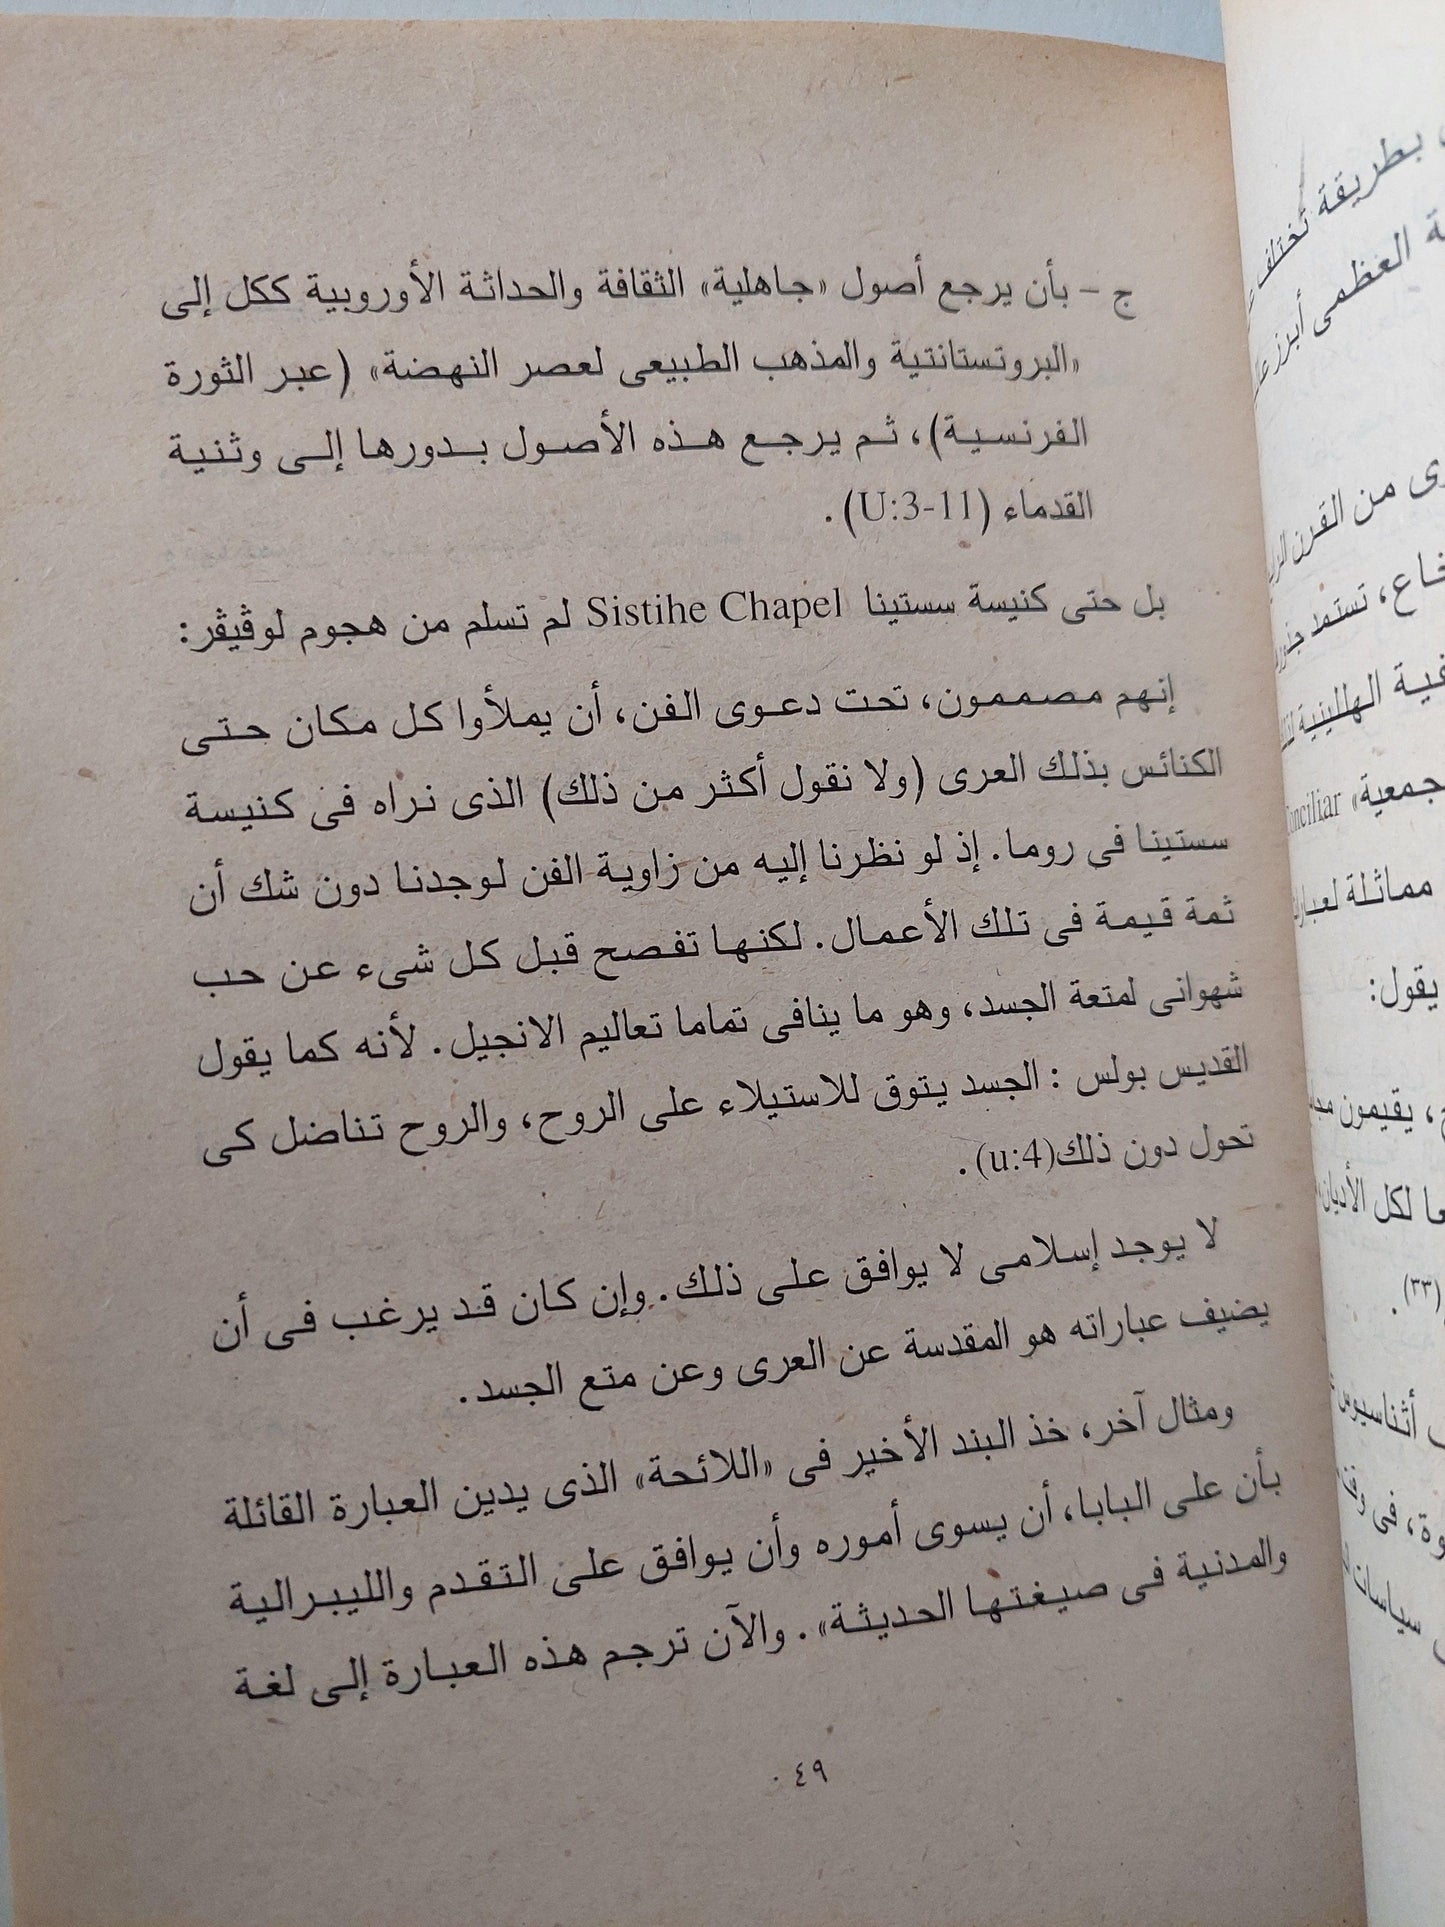 ج - بأن يرجع أصول «جاهلية» الثقافة والحداثة الأوروبية ككل إلى
«البروتستانتية والمذهب الطبيعى لعصر النهضة» (عبر الثورة
الفرنسية)، ثم يرجع هذه الأصول بدورها إلى وثنية
القدماء (U:3-11).
بل حتى كنيسة سستينا Sistihe Chapel لم تسلم من هجوم لوڤيڤر:
إنهم مصممون، تحت دعوى الفن، أن يملأوا كل مكان حتى
الكنائس بذلك العرى (ولا نقول أكثر من ذلك) الذى نراه فى كنيسة
سستينا فى روما. إذ لو نظرنا إليه من زاوية الفن لوجدنا دون شك أن
ثمة قيمة فى تلك الأعمال. لكنها تفصح قبل كل شىء عن حب
شهوانى لمتعة الجسد، وهو ما ينافى تماما تعاليم الانجيل. لأنه كما يقول
القديس بولس : الجسد يتوق للاستيلاء على الروح، والروح تناضل كى
تحول دون ذلك(u:4).
لا يوجد إسلامى لا يوافق على ذلك. وإن كان قد يرغب فى أن
يضيف عباراته هو المقدسة عن العرى وعن متع الجسد.
ومثال آخر، خذ البند الأخير فى «اللائحة» الذى يدين العبارة القائلة
بأن على البابا، أن يسوى أموره وأن يوافق على التقدم والليبرالية
والمدنية فى صيغتها الحديثة». والآن ترجم هذه العبارة إلى لغة
٤٩
بطريقة تختلف
العظمى أبرز
من القرن
تستمد
الهللينية
جمعية» Conciliar
مماثلة
يقول:
، يقيمون
لكل الأديان
(٣٣).
أثناسيوس
، فى
سياسات